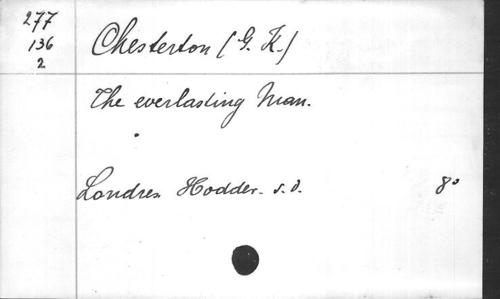 277
136
2
Chesterton (G. K.)
The everlasting Man.
Londres Hodder. s.d. 8º